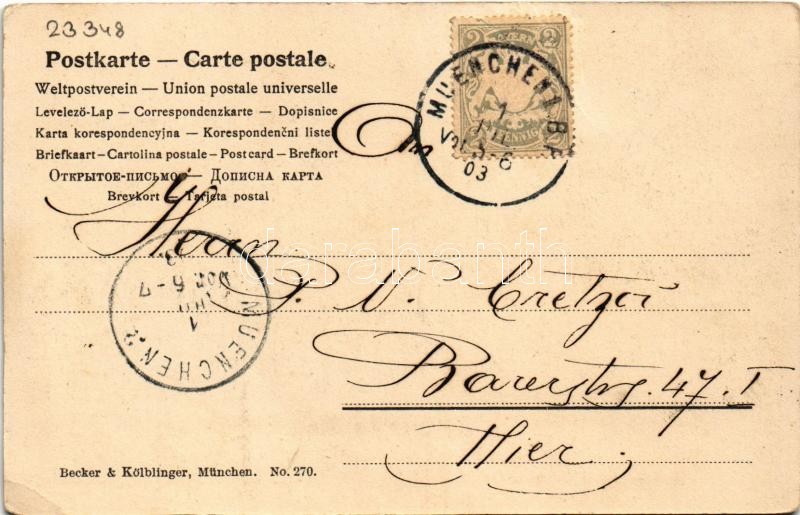 23348
Postkarte — Carte postale
Weltpostverein — Union postale universelle
Levelező-Lap — Correspondenzkarte — Dopisnice
Karta korespondencyjna — Korespondenční listek
Briefkaart — Cartolina postale — Postcard — Brefkort
Открытое-письмо — Дописна карта
Brevkort — Tarjeta postal
BAYERN
2 2
PFENNIG
MUENCHEN 1. B.P.
1
5-6
03
An
Herrn
P. V. Cretzoi
Barerstrs. 47. I
Hier.
MUENCHEN. 2
1
6-7
darabanth
Becker & Kölblinger, München. No. 270.